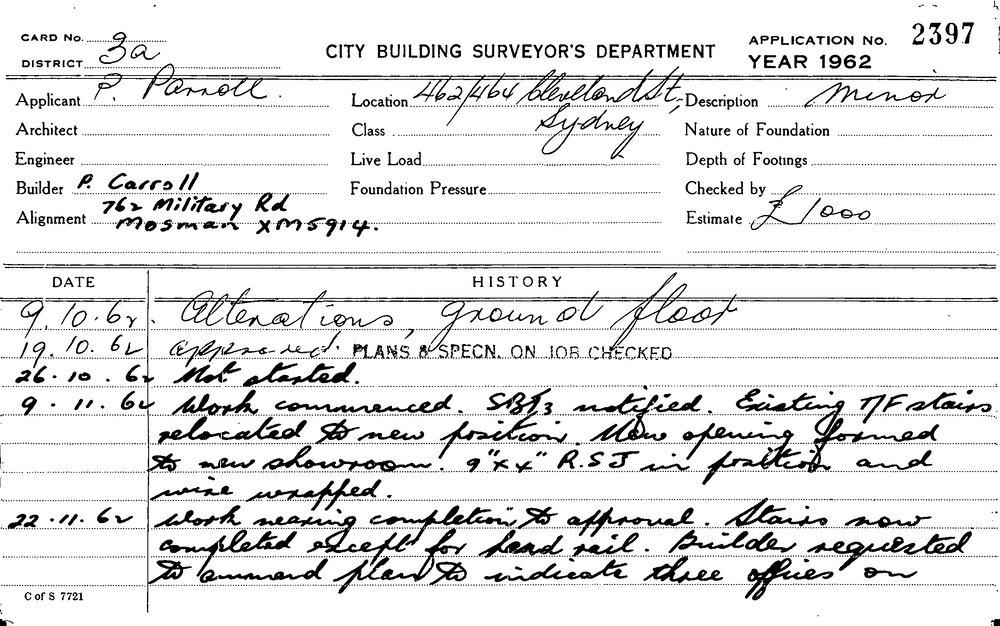 CARD No.
DISTRICT 3a
CITY BUILDING SURVEYOR'S DEPARTMENT
APPLICATION No. 2397
YEAR 1962
Applicant P. Parroll.
Location 462/464 Cleveland St,
Sydney
Description Minor
Architect
Class
Nature of Foundation
Engineer
Live Load
Depth of Footings
Builder P. Carroll
762 Military Rd
Foundation Pressure
Checked by
Alignment
Mosman XM5914.
Estimate £1000
DATE
HISTORY
9.10.62. Alterations, ground floor
19.10.62 approved. PLANS & SPECN. ON JOB CHECKED
26.10.62 Not started.
9.11.62 Work commenced. notified. Existing T/F stairs
relocated to new position. New opening formed
to new showroom. 9"x4" R.S.J in position and
wire wrapped.
22.11.62 Work nearing completion to approval. Stairs now
completed except for hand rail. Builder requested
to ammend plan to indicate three offices on
C of S 7721